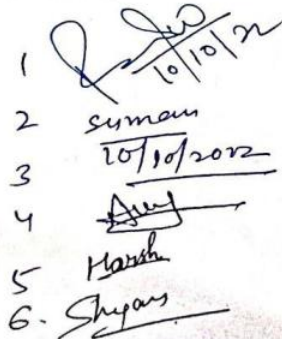 1 10/10/22
2 suman
3 10/10/2022
4
5 Harsh
6. Shyam